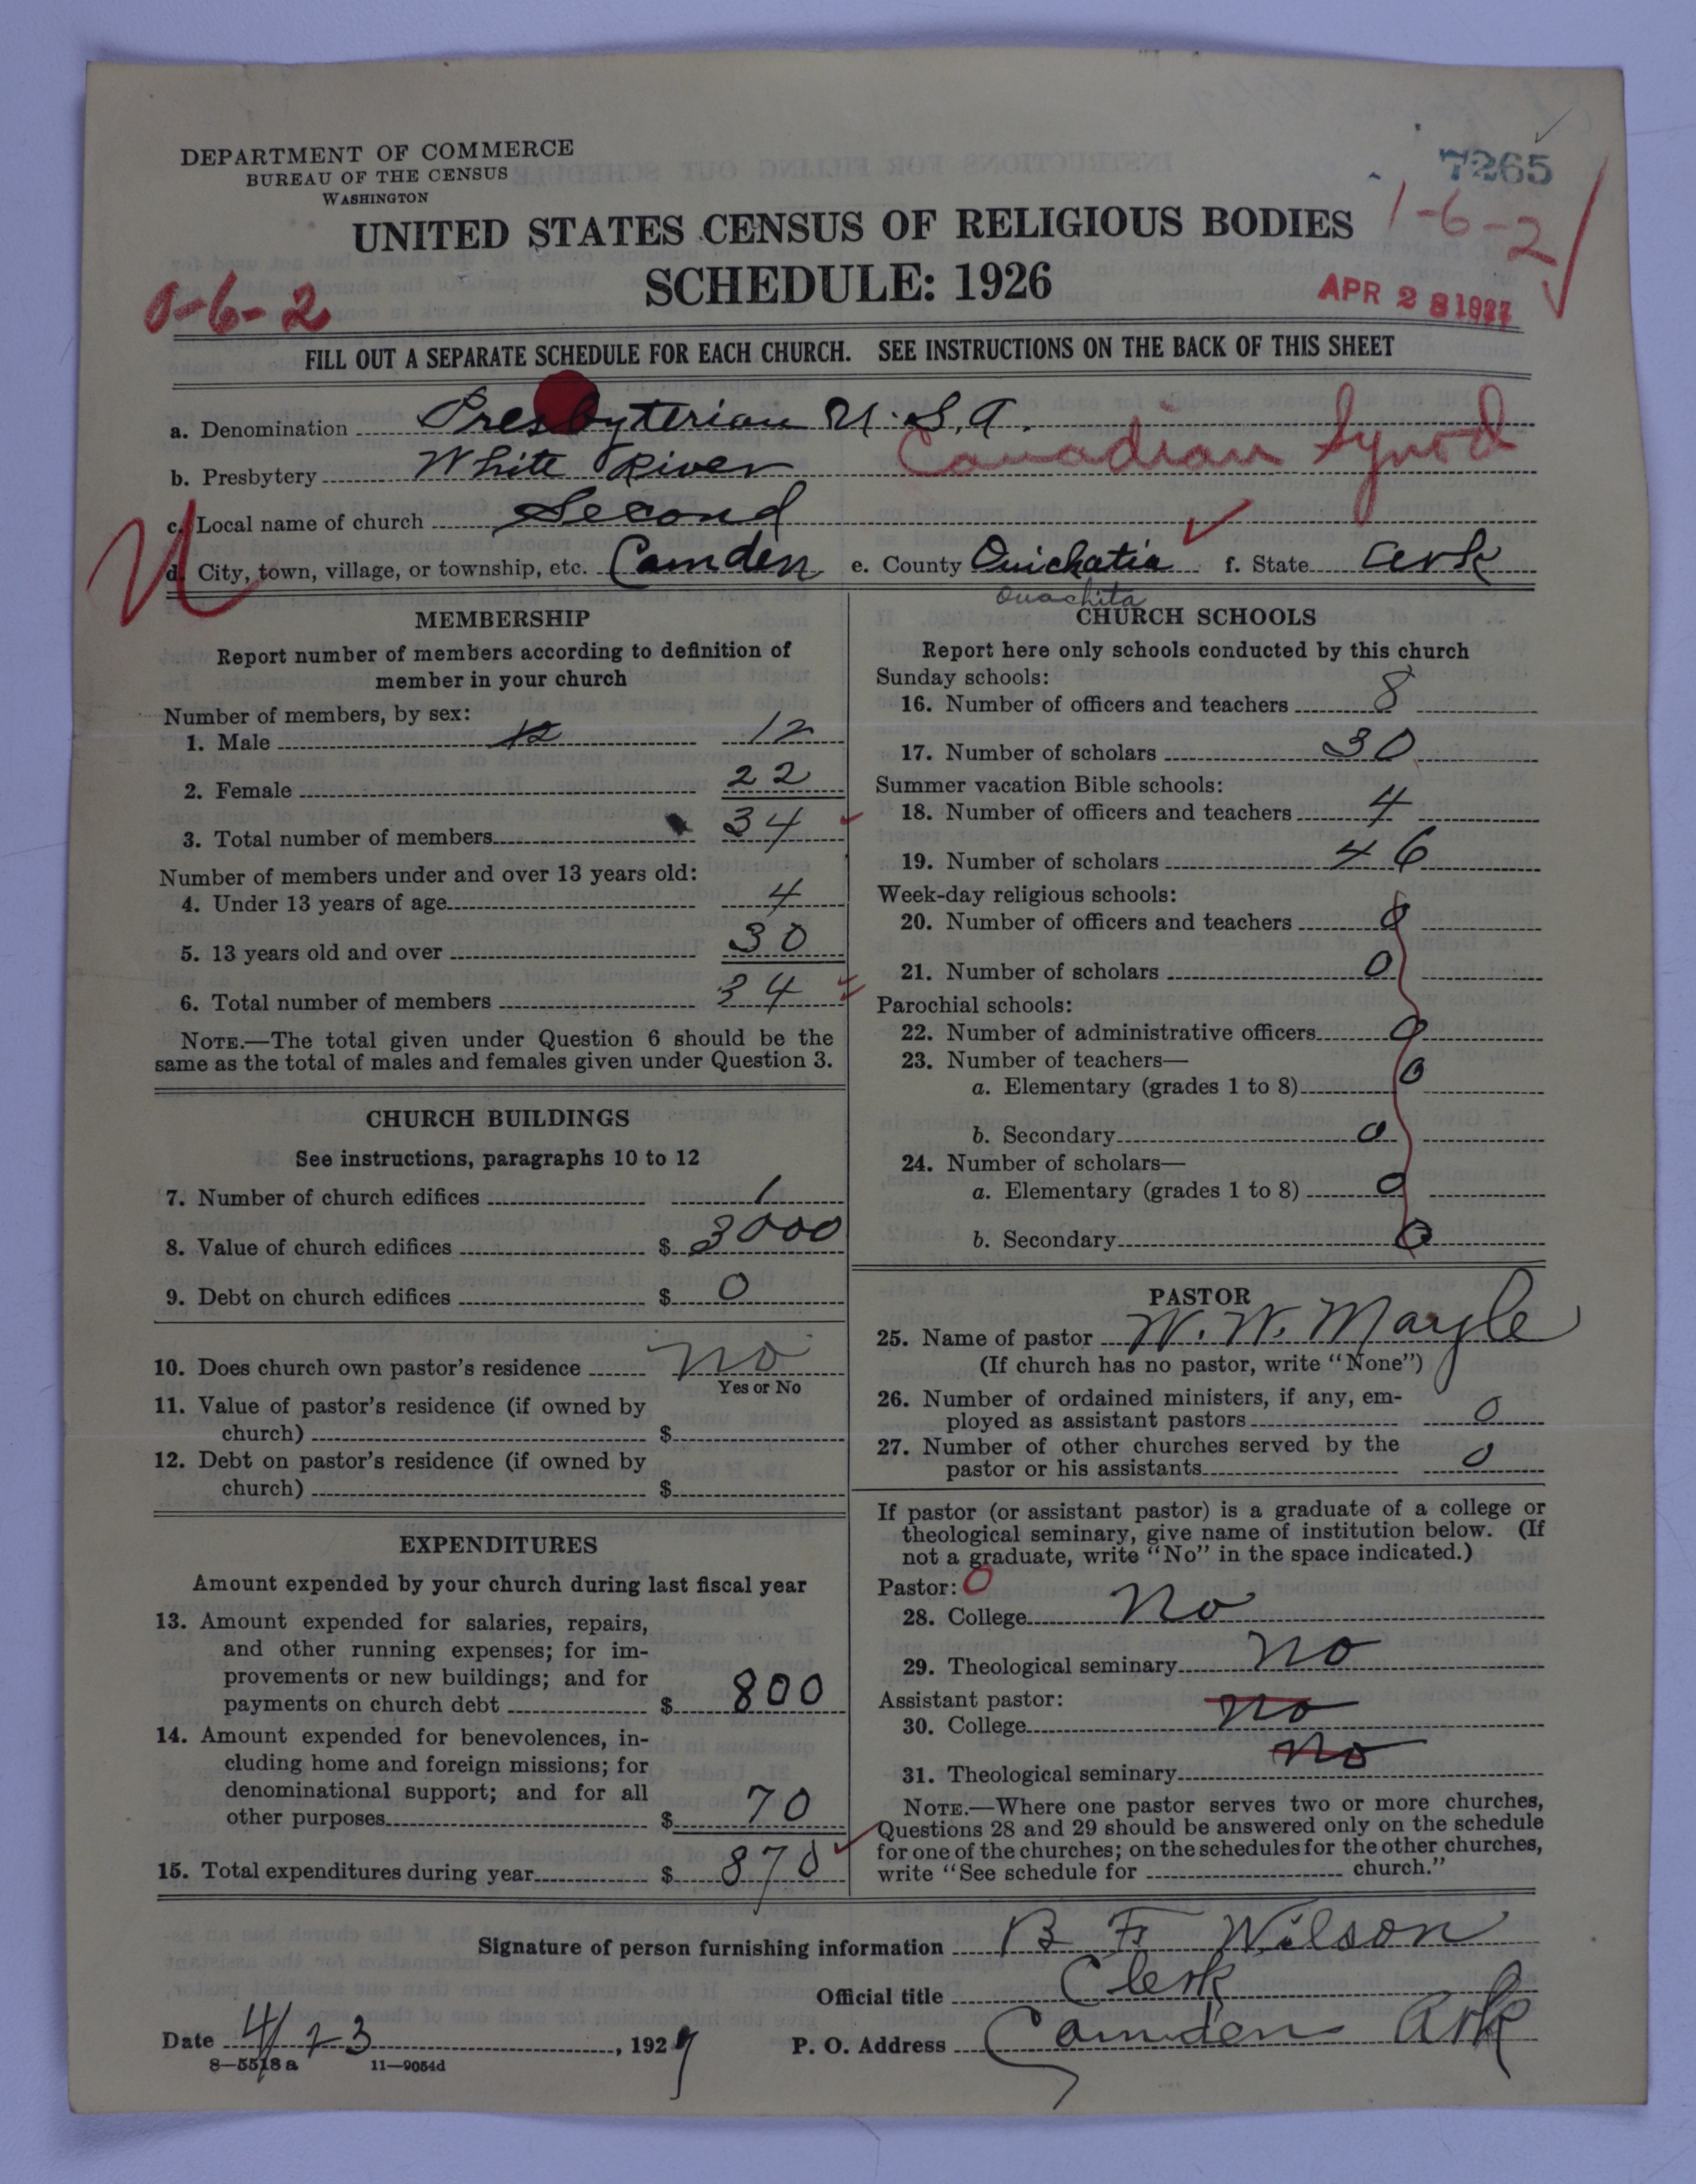 DEPARTMENT OF COMMERCE
BUREAU OF THE CENSUS
WASHINGTON
7265
1-6-2
UNITED STATES CENSUS OF RELIGIOUS BODIES
SCHEDULE: 1926
1-6-2
APR 28 1927
FILL OUT A SEPARATE SCHEDULE FOR EACH CHURCH. SEE INSTRUCTIONS ON THE BACK OF THIS SHEET
a. Denomination Presbyterian U.S.A.
b. Presbytery White River Canadian Synod
c. Local name of church Second
U
d. City, town, village, or township, etc. Camden e. County Ouichatia f. State Ark
Ouachita
MEMBERSHIP
Report number of members according to definition of
member in your church
Number of members, by sex:
1. Male 12 12
2. Female 22
3. Total number of members 34
Number of members under and over 13 years old:
4. Under 13 years of age 4
5. 13 years old and over 30
6. Total number of members 34
NOTE.—The total given under Question 6 should be the
same as the total of males and females given under Question 3.
CHURCH BUILDINGS
See instructions, paragraphs 10 to 12
7. Number of church edifices 1
8. Value of church edifices $ 3000
9. Debt on church edifices $ 0
10. Does church own pastor's residence no
Yes or No
11. Value of pastor's residence (if owned by
church) $
12. Debt on pastor's residence (if owned by
church) $
EXPENDITURES
Amount expended by your church during last fiscal year
13. Amount expended for salaries, repairs,
and other running expenses; for im-
provements or new buildings; and for
payments on church debt $ 800
14. Amount expended for benevolences, in-
cluding home and foreign missions; for
denominational support; and for all
other purposes $ 70
15. Total expenditures during year $ 870
CHURCH SCHOOLS
Report here only schools conducted by this church
Sunday schools:
16. Number of officers and teachers 8
17. Number of scholars 30
Summer vacation Bible schools:
18. Number of officers and teachers 4
19. Number of scholars 46
Week-day religious schools:
20. Number of officers and teachers 0
21. Number of scholars 0
Parochial schools:
22. Number of administrative officers 0
23. Number of teachers—
a. Elementary (grades 1 to 8) 0
b. Secondary 0
24. Number of scholars—
a. Elementary (grades 1 to 8) 0
b. Secondary 0
PASTOR
25. Name of pastor W. W.
(If church has no pastor, write "None")
26. Number of ordained ministers, if any, em-
ployed as assistant pastors 0
27. Number of other churches served by the
pastor or his assistants 0
If pastor (or assistant pastor) is a graduate of a college or
theological seminary, give name of institution below. (If
not a graduate, write "No" in the space indicated.)
Pastor: 0
28. College no
29. Theological seminary no
Assistant pastor:
30. College no
31. Theological seminary no
NOTE.—Where one pastor serves two or more churches,
Questions 28 and 29 should be answered only on the schedule
for one of the churches; on the schedules for the other churches,
write "See schedule for church."
Signature of person furnishing information B F Wilson
Official title Clerk
Date 4/23, 1927 P. O. Address Camden Ark
8—5518 a 11—9054d